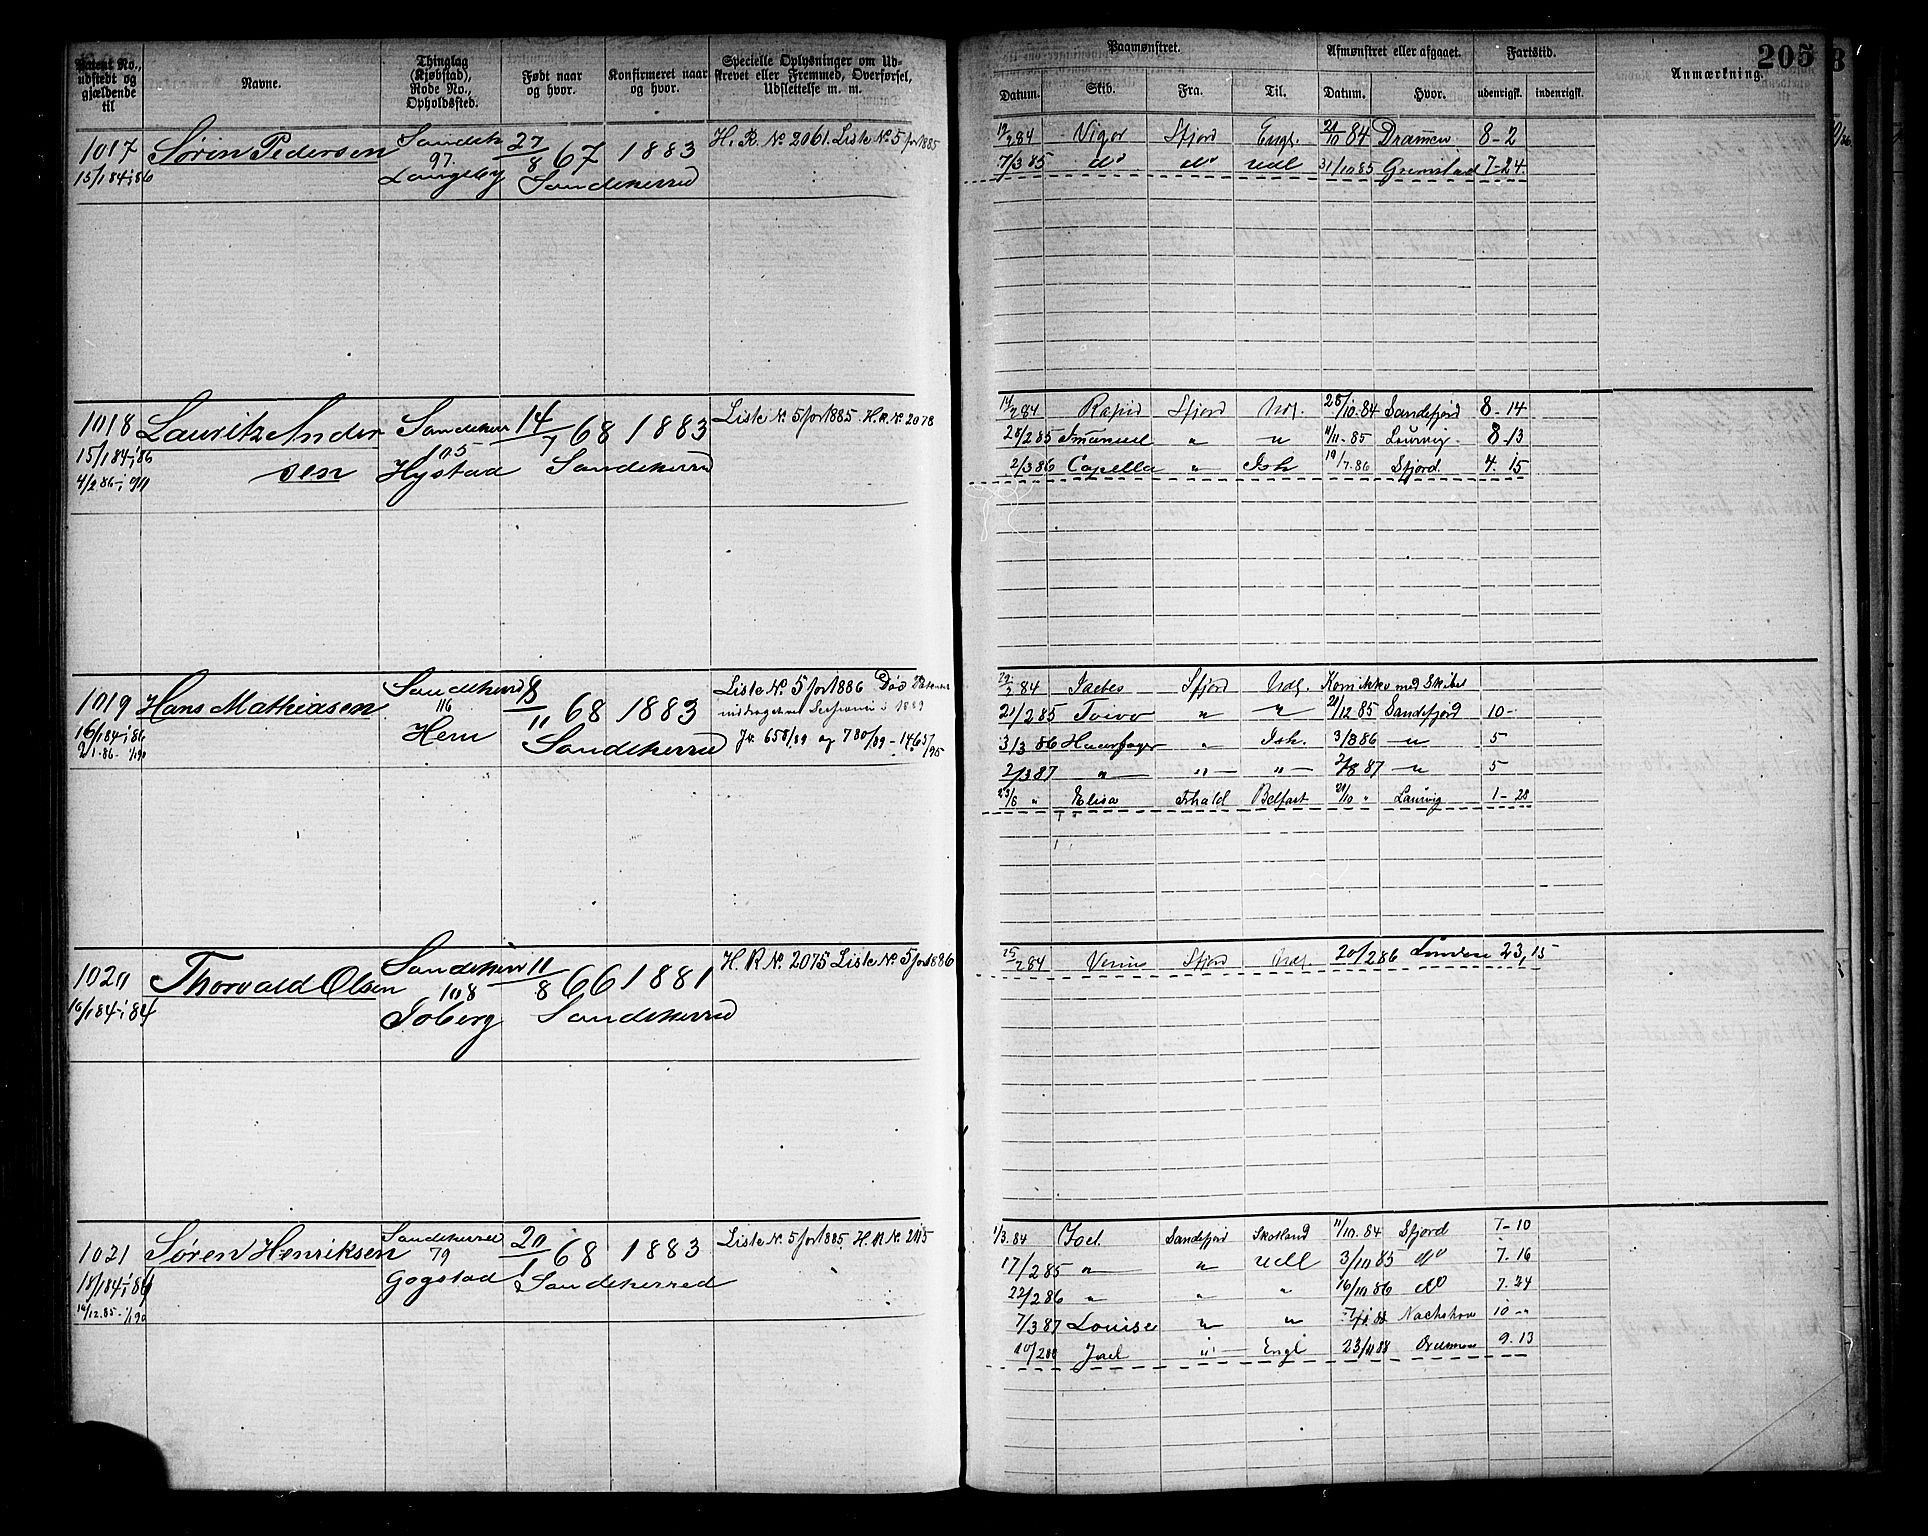 205
Patent No., udstedt og gjældende til
Navne.
Thinglag (Kjøbstad), Rode No., Opholdssted.
Født naar og hvor.
Konfirmeret naar og hvor.
Specielle Oplysninger om Udskrevet eller Fremmed, Overførsel, Udslettelse m. m.
Paamønstret.
Afmønstret eller afgaaet.
Fartstid.
Anmærkning.
Datum. Skib. Fra. Til. Datum. Hvor. udenrigsk. indenrigsk.
1017 Søren Pedersen Sandeh 27/8 67 1883 H. R. No 2061. Liste No 5 for 1885
15/1 84-i 86 97. Sandeherred
Langeby
19/2 84 Vigor Sfjord Engl. 21/10 84 Drammen 8-2
7/3 85 do do Udl 31/10 85 Grimstad 7-24.
1018 Lauritz Ander Sandeherr 14/7 68 1883 Liste No 5 for 1885 H. R. No 2078
15/1 84-i 86 sen 105 Sandeherred
4/2 86-i 90 Hystad
14/2 84 Rapid Sfjord Udl. 28/10. 84 Sandefjord 8-14
28/2 85 Imanuel " " 11/11-85 Laurvig. 8-13
2/3 86 Capella " Ish 19/7.86 Sfjord. 4. 15
1019 Hans Mathiasen Sandeherred 18/11 68 1883 Liste No 5 for 1886
16/1 84-i 86 116 Sandeherred 1889
9/1-86- 1/1 90 Hem Jr. 658/89 og 780/89-1463/95
29/2 84 Sfjord Udl. Kom ikke med Skibet
21/2 85 Toivo " " 21/12 85 Sandefjord 10-
3/3 86 Haarfager " Ish. 3/8 86 -"- 5
2/3 87 -"- -"- -"- 2/8 87 -"- 5
23/6 " Elisa Frhald Belfast 21/10 " Laurvig 1-28
1020 Thorvald Olsen Sandeherr 11/8 66 1881 H. R No. 2075 Liste No. 5 for 1886
16/1 84-i 84 108 Sandeherred
Joberg
25/2 84 Venus Sfjord Udl 20/2 86 London 23,15
1021 Søren Henriksen Sandeherred 20/1 68 1883 Liste No. 5 for 1885. H. R No. 2115
18/1 84-i 86 79 Sandeherred
19/12.85-1/1 90 Gogstad
1/3.84 Joel Sandefjord Skotland 11/10. 84 Sfjord 7-10
17/2 85 " " Udl 3/10 85 do 7-16
22/2 86 " " " 16/10 86 do 7-24
7/3 87 Louise " " Nachskow 10-"
10/2 88 Joel -"- Engl 23/11 88 Drammen 9-13